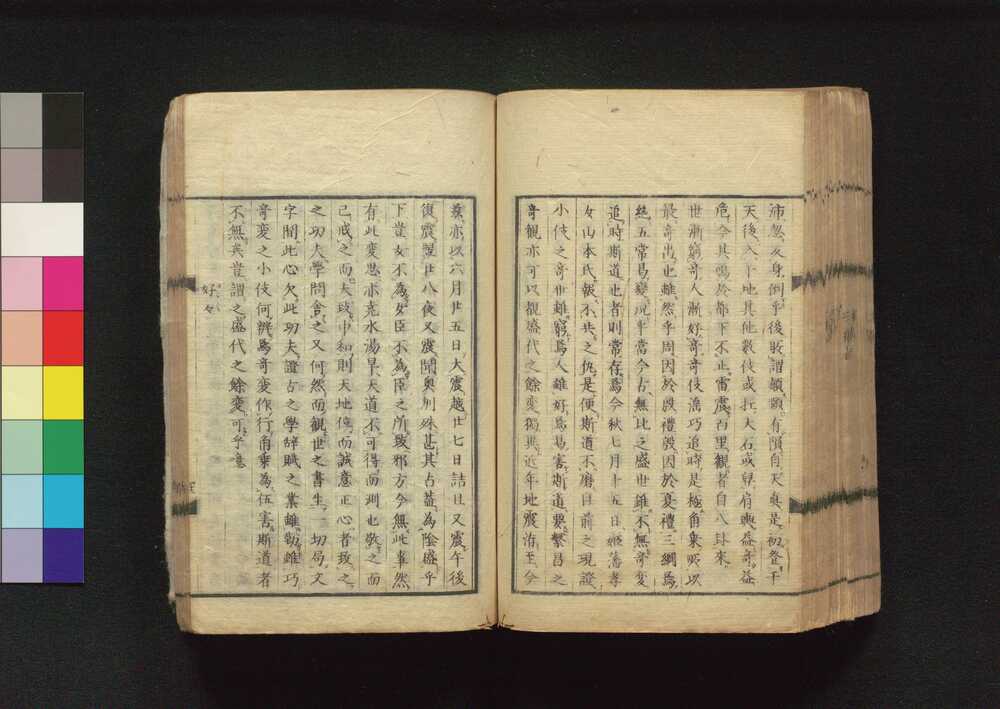 沛忽反身倒乎後敗謂顛顛有隕自天奥是初登于
天後入于地其他数伎或扛大石或舁肩輿益奇益
危今其鳴於都下不止雷震百里観者自八卦来
世漸窮奇人漸好奇奇伎濡巧追時是極角乗呪以
最奇出也雖然乎周因於殷禮殷因於夏禮三綱為
統五常易變况乎當今古無比之盛世雖不無奇変
追時斯道也者則常存焉今秋七月十五日姫藩孝
女山本氏報不共之仇是便斯道不磨目前之現證
小伎之奇世雖窮為人雖好為易害斯道要繁昌之
奇観亦可以観盛代之餘変獨興近年地震洊至今
茲亦以六月廿五日大震越廿七日詰旦又震午後
復震翌廿八夜又震聞奥州殊甚其占益為陰盛乎
下豈女不為女臣不為臣之所致邪方今無此事然
有此変思亦尭水湯旱天道不可得而測也敬之而
已戒之而大致中和則天地位而誠意正心者致之
之功人學問舎之又何然而観世之書生一切局文
字間此心欠此功夫證占之學辞賦之業雖勒雖巧
奇変之小伎何辨為奇変作行角乗為伍害斯道者
不無矣豈謂之盛代之餘変可乎意
好々